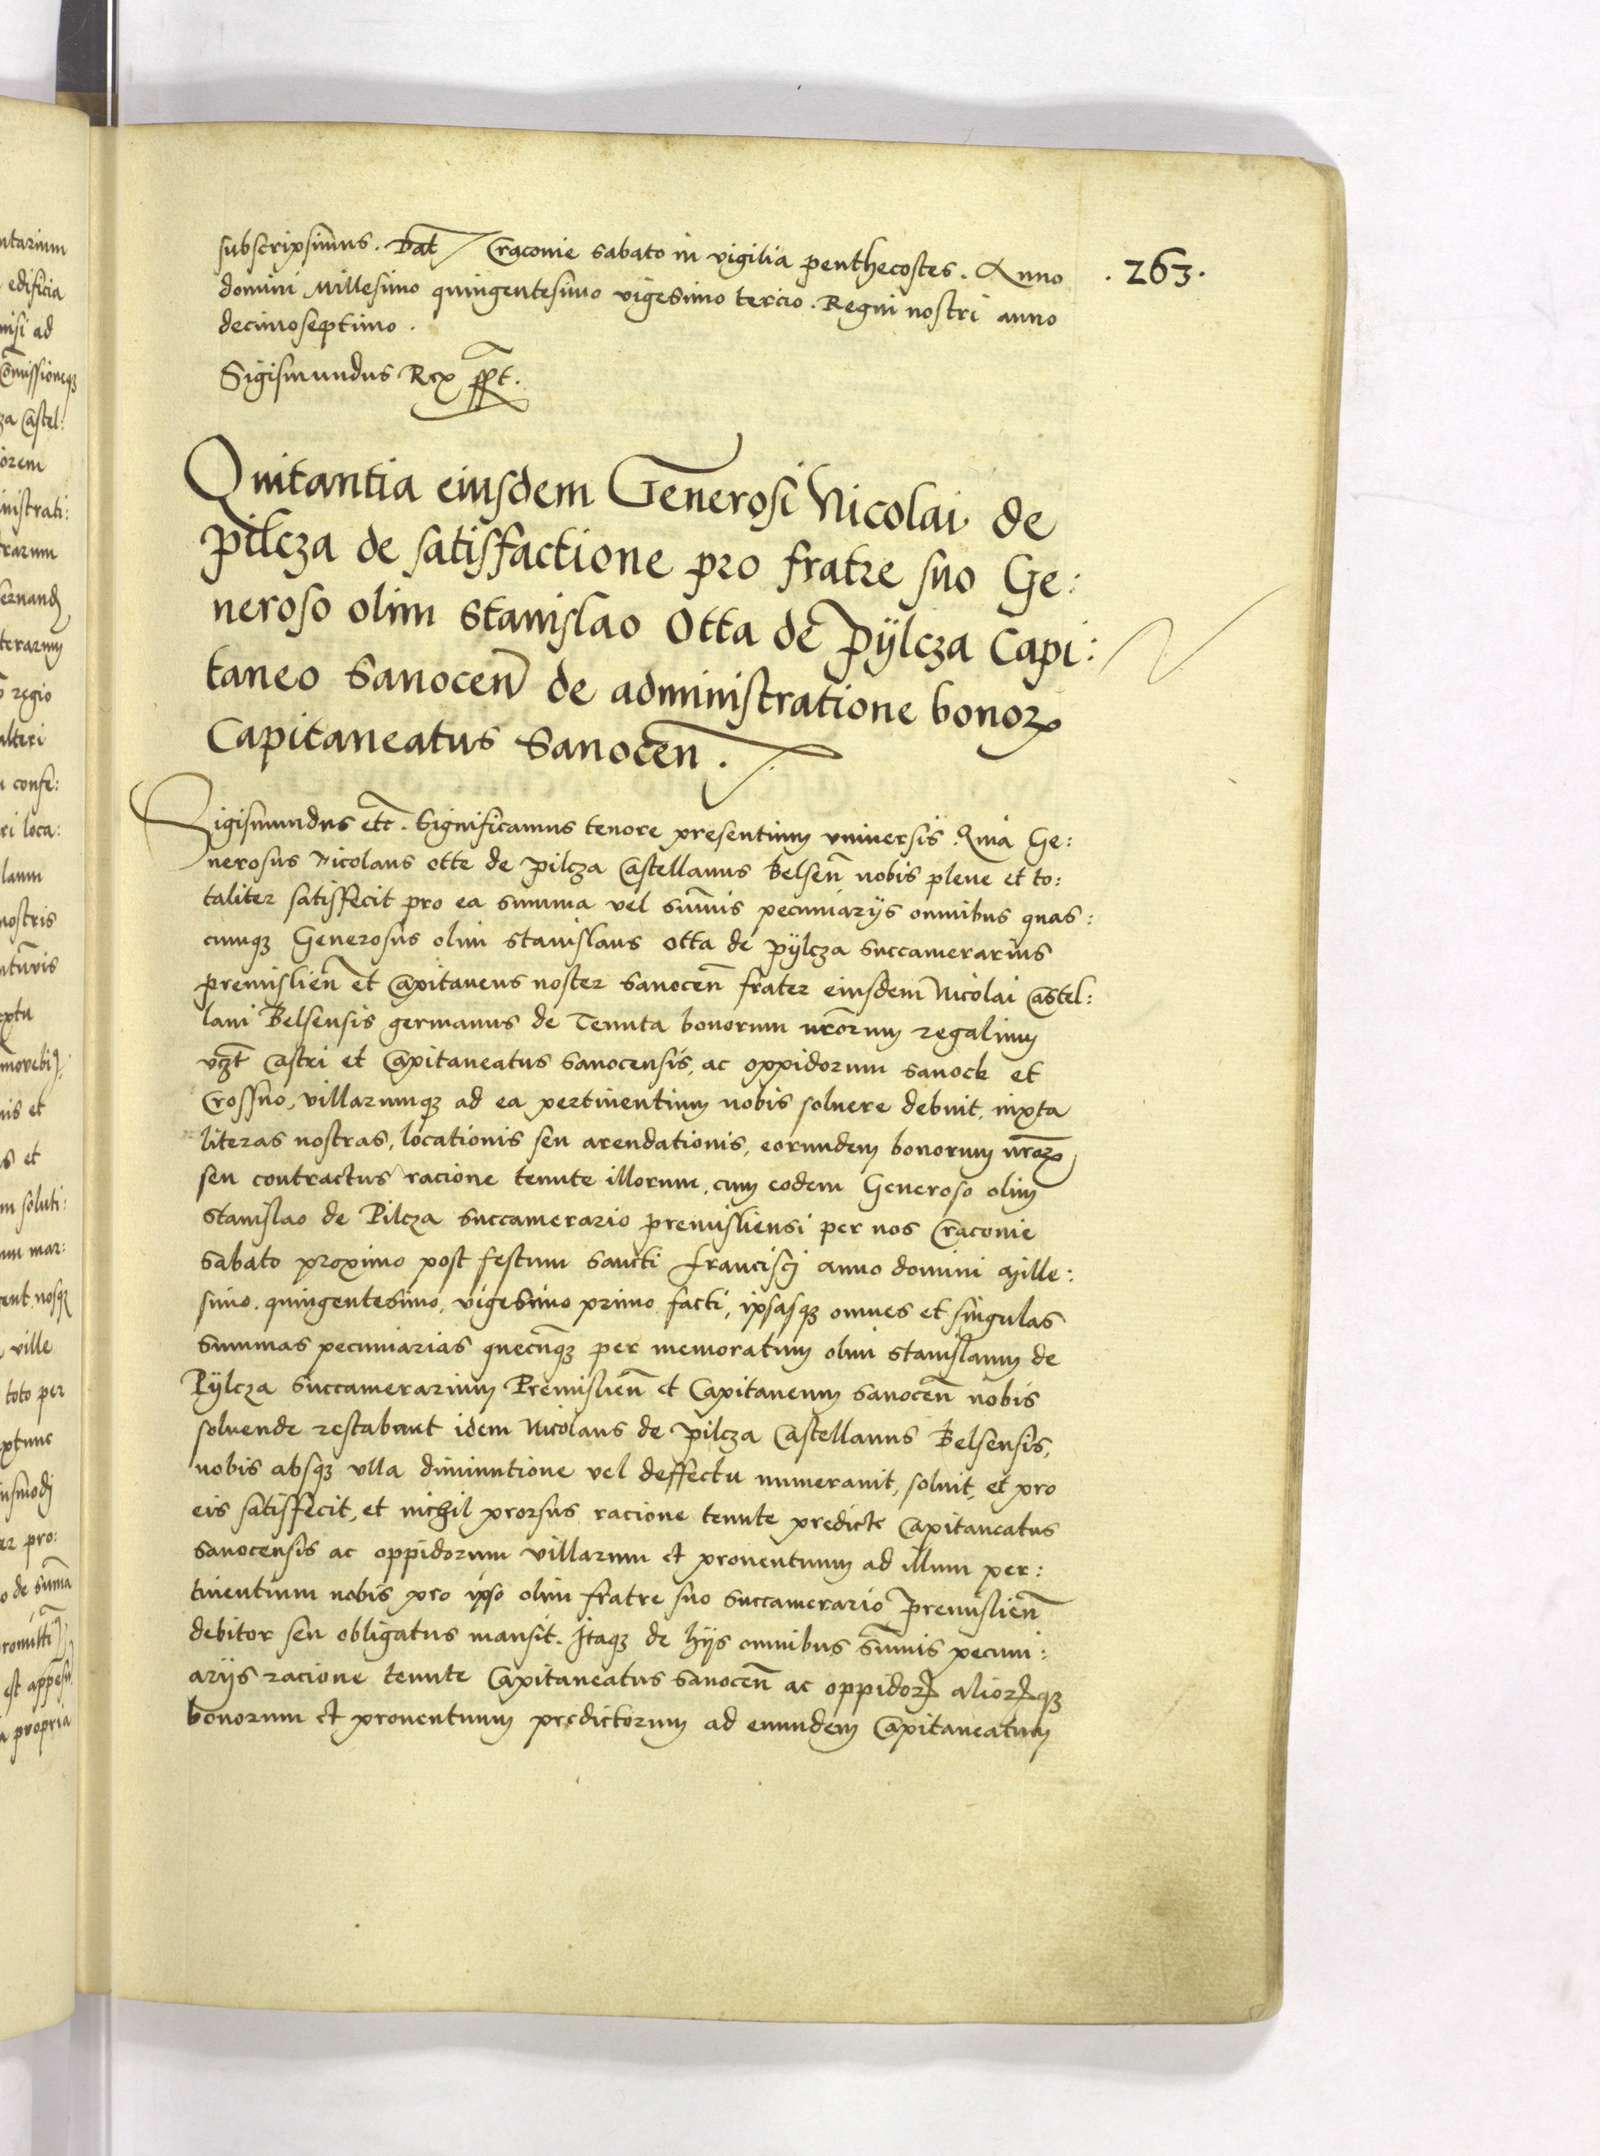 subscripsimus. Dat̄ Cracovie sabato in vigilia penthecostes. Anno
. 263 .
domini Millesimo quingentesimo vigesimo tercio. Regni nostri anno
decimoseptimo.
Sigismundus Rex ss̄t.
Quitantia eiusdem Generosi Nicolai de
pilcza de satisfactione pro fratre suo Ge:
neroso olim Stanislao Otta de Pÿlcza Capi:
taneo Sanocen̄ de administratione bonoꝝ
Capitaneatus Sanocen̄.
Sigismundus etc̄. Significamus tenore presentium universis. Quia Ge:
nerosus Nicolaus otte de pilcza Castellanus Belsen̄ nobis plene et to:
taliter satisfecit pro ea summa vel sum̄is pecuniarijs omnibus quas:
cumqꝫ Generosus olim Stanislaus Otta de pÿlcza Succamerarius
premislien̄ et Capitaneus noster Sanocen̄ frater eiusdem Nicolai Castel:
lani Belsensis germanus de Tenuta bonorum nr̄orum regalium
vꝫt Castri et Capitaneatus Sanocensis, ac oppidorum Sanock et
Crossno, villarumqꝫ ad ea pertinentium nobis solvere debuit, iuxta
literas nostras, locationis seu arendationis, eorundem bonorum nr̄oꝝ
seu contractus racione tenute illorum, cum eodem Generoso olim
Stanislao de Pilcza Succamerario premisliensi per nos Cracovie
Sabato proximo post festum Sancti francisci anno domini Mille:
simo. quingentesimo, vigesimo primo facti, ipsasqꝫ omnes et singulas
Summas pecuniarias quecūqꝫ per memoratum olim Stanislaum de
Pÿlcza Succamerarium Premislien̄ et Capitaneum Sanocen̄ nobis
solvende restabant idem Nicolaus de pilcza Castellanus Belsensis,
nobis absqꝫ ulla diminutione vel deffectu numeravit, solvit, et pro
eis satisfecit, et nichil prorsus racione tenute predicte Capitaneatus
Sanocensis ac oppidorum villarum et proventuum ad illum per:
tinentium nobis pro ipso olim fratre suo Succamerario Premislien̄
debitor seu obligatus mansit. Itaqꝫ de hijs omnibus sum̄is pecuni:
arijs racione tenute Capitaneatus Sanocen̄ ac oppidoꝝ alioꝝqꝫ
bonorum et proventuum predictorum ad eundem Capitaneatum